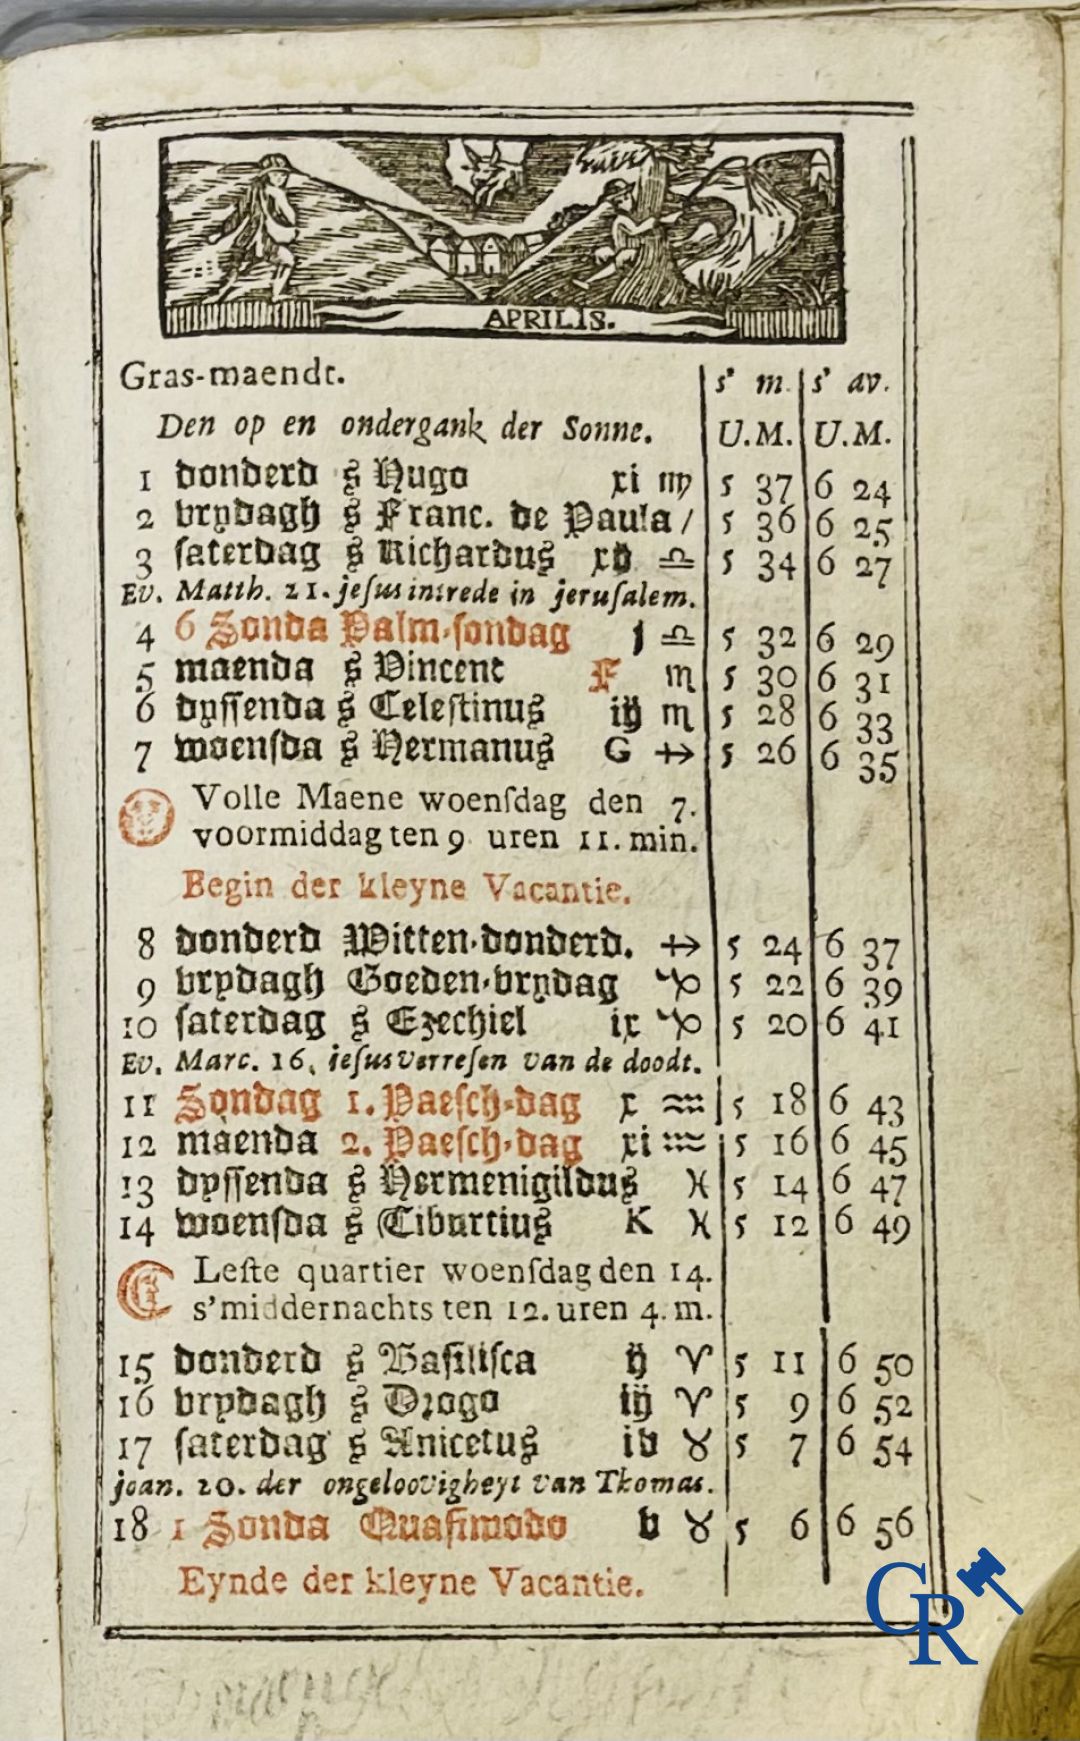 APRILIS.
Gras-maendt. s' m. s' av.
Den op en ondergank der Sonne. U.M. U.M.
1 donderd s Hugo xi ♍ 5 37 6 24
2 vrydagh s Franc. de Paula / 5 36 6 25
3 saterdag s Richardus xv ♎ 5 34 6 27
Ev. Matth. 21. jesus intrede in jerusalem.
4 6 Sonda Palm-sondag j ♎ 5 32 6 29
5 maenda s Vincent F ♏ 5 30 6 31
6 dyssenda s Celestinus iij ♏ 5 28 6 33
7 woensda s Hermanus G ♐ 5 26 6 35
Volle Maene woensdag den 7.
voormiddag ten 9 uren 11. min.
Begin der kleyne Vacantie.
8 donderd Witten-donderd. ♐ 5 24 6 37
9 vrydagh Goeden-vrydag ♑ 5 22 6 39
10 saterdag s Ezechiel ix ♑ 5 20 6 41
Ev. Marc. 16. jesus verresen van de doodt.
11 Sondag 1. Paesch-dag x ♒ 5 18 6 43
12 maenda 2. Paesch-dag xi ♒ 5 16 6 45
13 dyssenda s Hermenigildus ♓ 5 14 6 47
14 woensda s Tiburtius K ♓ 5 12 6 49
Leste quartier woensdag den 14.
s'middernachts ten 12. uren 4. m.
15 donderd s Basilisca ij ♈ 5 11 6 50
16 vrydagh s Drogo iij ♈ 5 9 6 52
17 saterdag s Anicetus iv ♉ 5 7 6 54
joan. 20. der ongeloovigheyt van Thomas.
18 1 Sonda Quasimodo v ♉ 5 6 6 56
Eynde der kleyne Vacantie.
CR